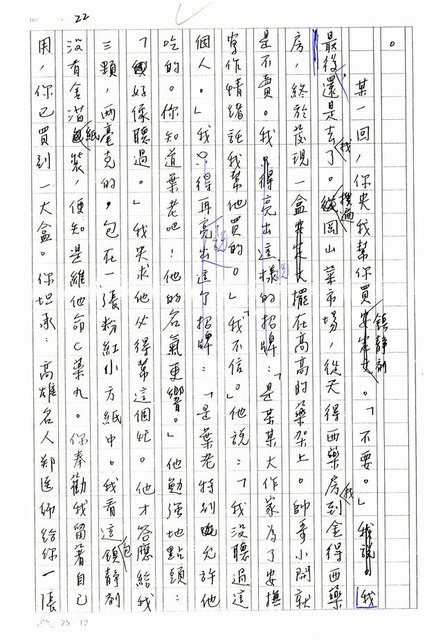 22
。
某一回，你央我幫你買鎮靜劑。「不要。」我說。我
最後還是去了。我搜遍岡山菜市場，從天得西藥房到金得西藥
房，終於發現一盒大擺在高高的藥架上。帥哥小開就
是不賣。我得亮出這樣的招牌：「是某某大作家為了安撫
寫作情緒託我幫他買的。」「我不信。」他說：「我沒聽過這
個人。」我只得再亮出這個招牌：「是葉老特別允許他
吃的。你知道葉老吧！他的名氣更響。」他勉強地點頭：
「好像聽過。」我央求他必得幫這個忙。他才答應給我
三顆，兩毫克的，包在一張粉紅小方紙中。我看這包鎮靜劑
沒有金箔紙裝，便知是維他命C藥丸。你奉勸我留著自己
用，你已買到一大盒。你坦承：高雄名人鄭醫師給你一張
25×12